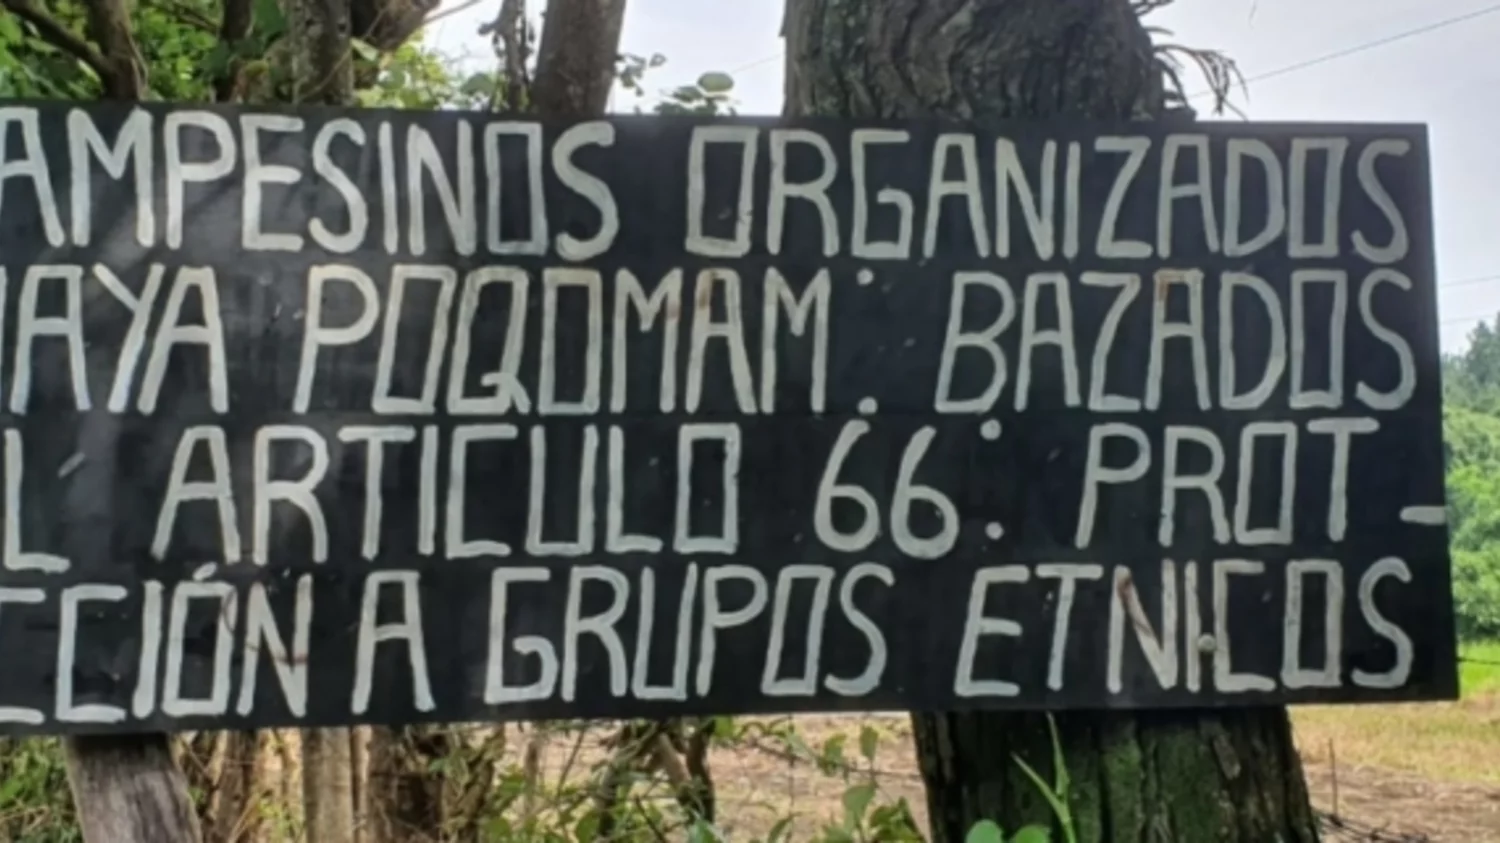 AMPESINOS ORGANIZADOS
AYA POQOMAM. BAZADOS
L ARTICULO 66. PROT-
CCIÓN A GRUPOS ETNICOS